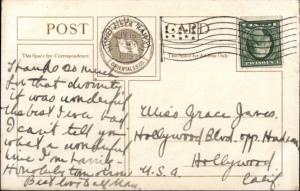 POST
CARD
This Space for Correspondence
This Space for Address Only
Thanks so much
for that divinity
it was wonderful
the best I've had
I can't tell you
what a wonderful
time I'm having -
Honolulu tomorrow
Best love to all
Miss Grace James
Hollywood Blvd. opp.
Hollywood
Calif.
U.S.A.